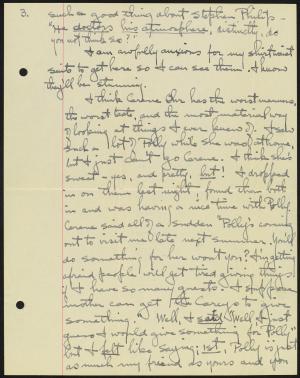 3.
such a good thing about Stephen Phillips-
"He doctors his atmosphere, distinctly, do
you not think so?"
I am awfully anxious for my shirtwaist
suits to get here so I can see them. I know
they'll be stunning.
I think Carene has the worst manners,
the worst taste, and the most material way
of looking at things I ever knew of. I saw
such a lot of Polly while she was at home,
but I just can't go Carene. I think she's
sweet - yes, and pretty, but! I dropped
in on them last night & found them both
in and was having a nice time with Polly
Carene said all of a sudden "Polly's coming
out to visit me late next summer. You'll
do something for her won't you? I'm getting
afraid people will get tired giving things
if I have so many guests. I suppose
mother can get the Careys to give
something." Well, I said "Well, I just
guess I would give something for Polly"
but I felt like saying; 1st, Polly is just
as much my friend as yours and you